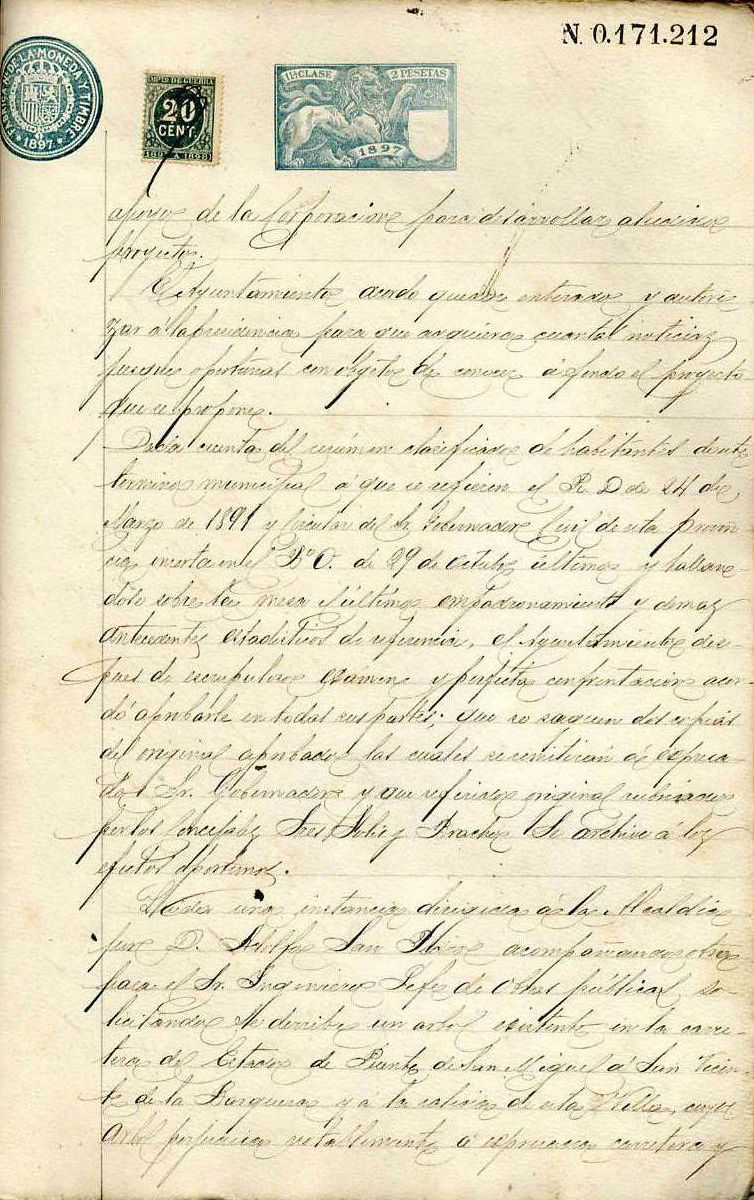 N. 0.171.212
FABRICA DE LA MONEDA Y TIMBRE
1897
IMPTO DE GUERRA
20
CENT
1897 A 1898
11ª CLASE
2 PESETAS
1897
apoyo de la Corporacion para desarrollar aludidos
proyectos.
El Ayuntamiento acordó quedar enterado y autori-
zar a la presidencia para que adquiera cuantas noticias
juzgue oportunas con objeto de conocer á fondo el proyecto
que se propone.
Dada cuenta del resúmen clasificado de habitantes de este
termino municipal a que se refieren el R. D. de 24 de
Marzo de 1891 y Circular del Sr. Gobernador Civil de esta provin-
cia inserta en el Bº O. de 29 de octubre último y hallan-
dose sobre la mesa el último empadronamiento y demas
antecedentes estadisticos de referencia, el Ayuntamiento des-
pues de escrupuloso examen y perfecta confrontacion acor-
dó aprobarle en todas sus partes; que se saquen dos copias
del original aprobado las cuales se remitirán al expresa-
do Sr. Gobernador y que referido original rubricado
por los Concejales Sres. y Bracho se archive á los
efectos oportunos.
Leida una instancia dirigida á la Alcaldia
por D. Adolfo San acompañando otra
para el Sr. Ingeniero Jefe de Obras públicas so-
licitando se derribe un arbol existente en la carre-
tera del Estado de Puente de San Miguel á San Vicen-
te de la Barquera y a la salida de esta Villa, cuyo
arbol perjudica notablemente a expresada carretera y